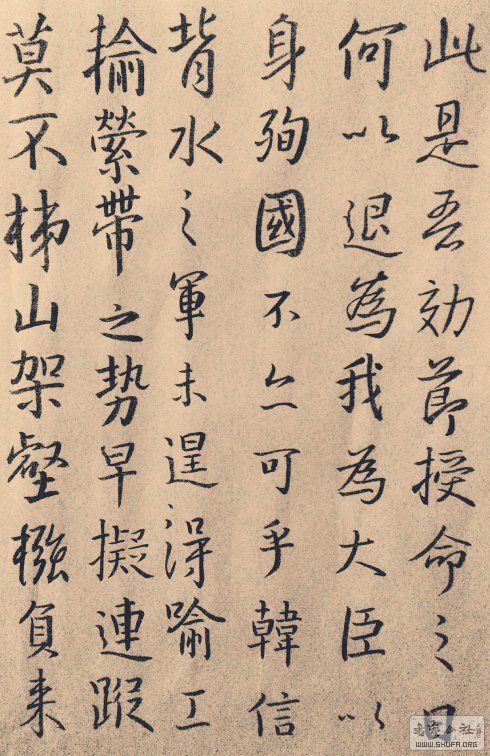 此是吾効節授命之日
何以退為我為大臣以
身殉國不亦可乎韓信
背水之軍未遑得喻工
揄縈帶之势早擬連蹤
莫不梯山架壑襁負来
WWW.SHUFA.ORG